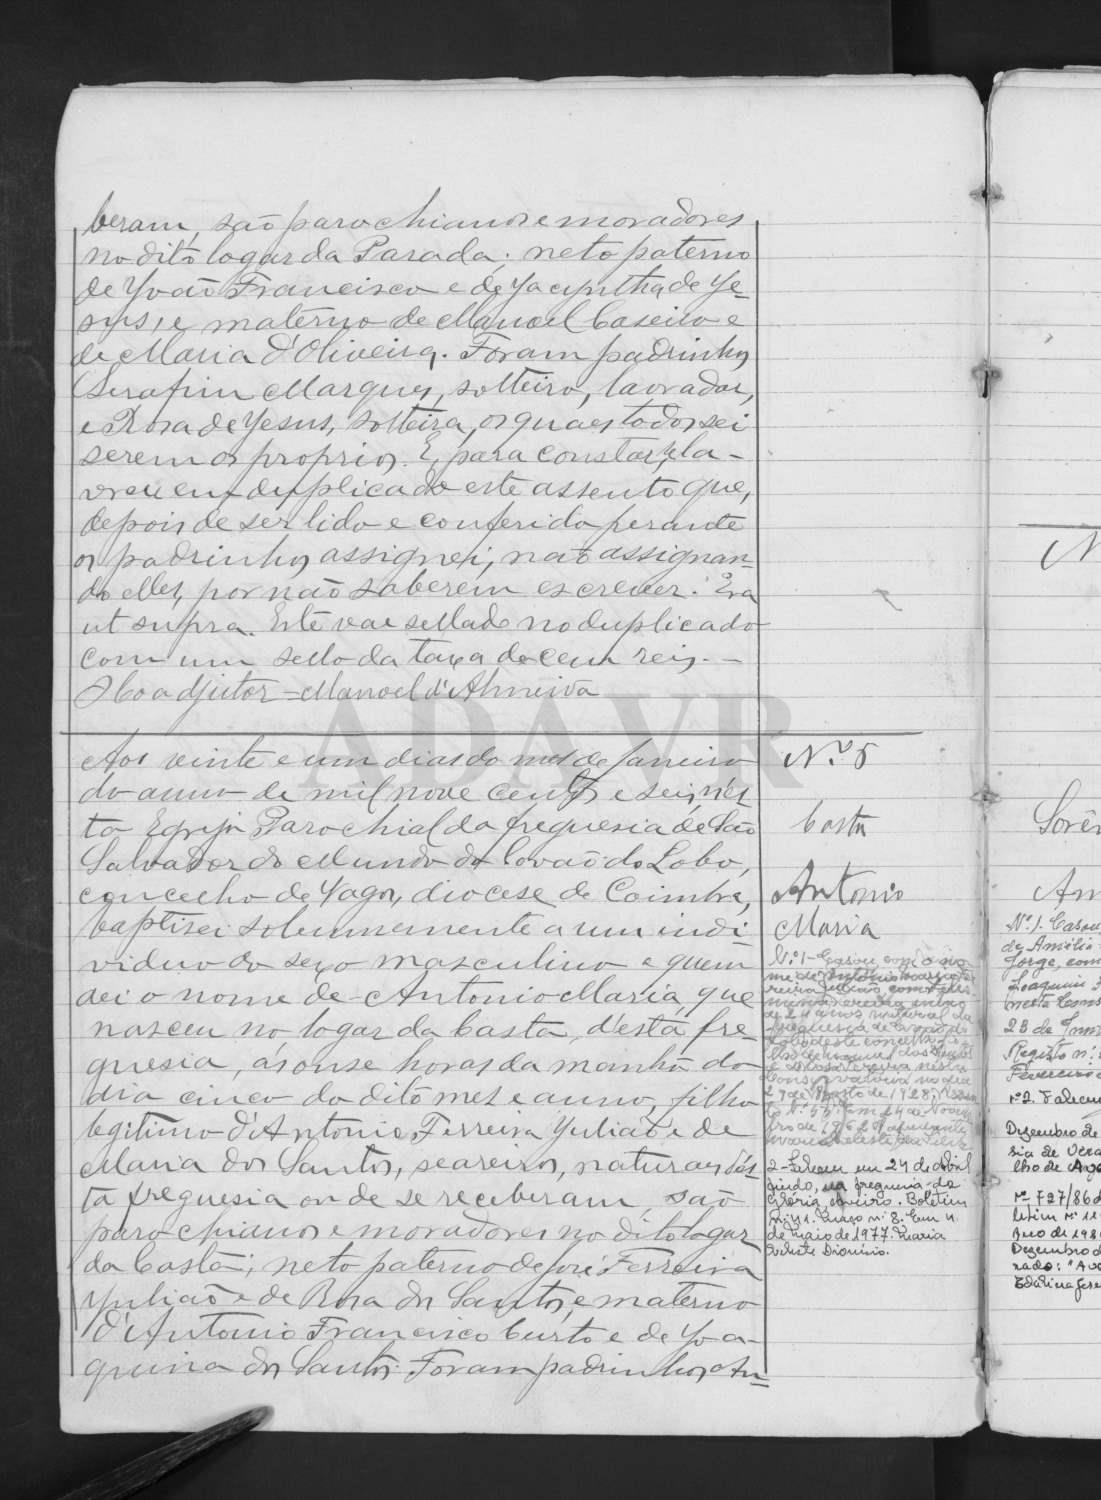 beram, são parochianos e moradores
no dito logar da Parada; neto paterno
de João Francisco e de Jacyntha de Je-
sus, e materno de Manoel Caseiro e
de Maria d'Oliveira. Foram padrinhos
Serafim Marques, solteiro, lavrador,
e Rosa de Jesus, solteira, os quaes todos sei
serem os proprios. E, para constar, la-
vrei em duplicado este assento que,
depois de ser lido e conferido perante
os padrinhos assignei, não assignan-
do elles, por não saberem escrever. Era
ut supra. Este vae sellado no duplicado
com um sello da taxa de cem reis. -
O Coadjutor - Manoel d'Almeida
ADAVR
Aos vinte e um dias do mes de Janeiro
do anno de mil nove centos e seis, nes
ta Egreja Parochial da freguesia de São
Salvador do Mundo do Covão do Lobo,
concelho de Vagos, diocese de Coimbra,
baptisei solemnemente a um indi-
viduo do sexo masculino a quem
dei o nome de - Antonio Maria, que
nasceu no logar da Costa, d'esta fre-
guesia, ás onse horas da manhã do
dia cinco do dito mes e anno, filho
legitimo d'Antonio Ferreira Julião e de
Maria dos Santos, seareiros, naturaes d'es
ta freguesia onde se receberam, são
parochianos e moradores no dito logar
da Costa; neto paterno de José Ferreira
Julião e de Rosa dos Santos, e materno
d'Antonio Francisco Curto e de Joa-
quina dos Santos. Foram padrinhos An-
Nº 5
Costa
Antonio
Maria
Nº 1 - Casou com
de 24 anos natural da
freguesia de Covão do
Lobo deste concelho
Conservatoria no dia
29 de Agosto de 1928.
Em 24 de Novem
bro de 1962.
2 - Faleceu em 24 de Abril
findo, na freguesia da
Glória, Aveiro. Boletim
nº 41. Março nº 8. Em 4
de Maio de 1977. Maria
Dionisio.
N
Sorê
An
Nº 1. Casou
de Amilio
Jorge, com
Joaquim
nesta Cons
28 de
Registo nº
Fevereiro
nº 2. Faleceu
Dezembro de
sia de Vera
lho de
nº 727/86
letim nº 11
Ano de 198
Dezembro d
nado: